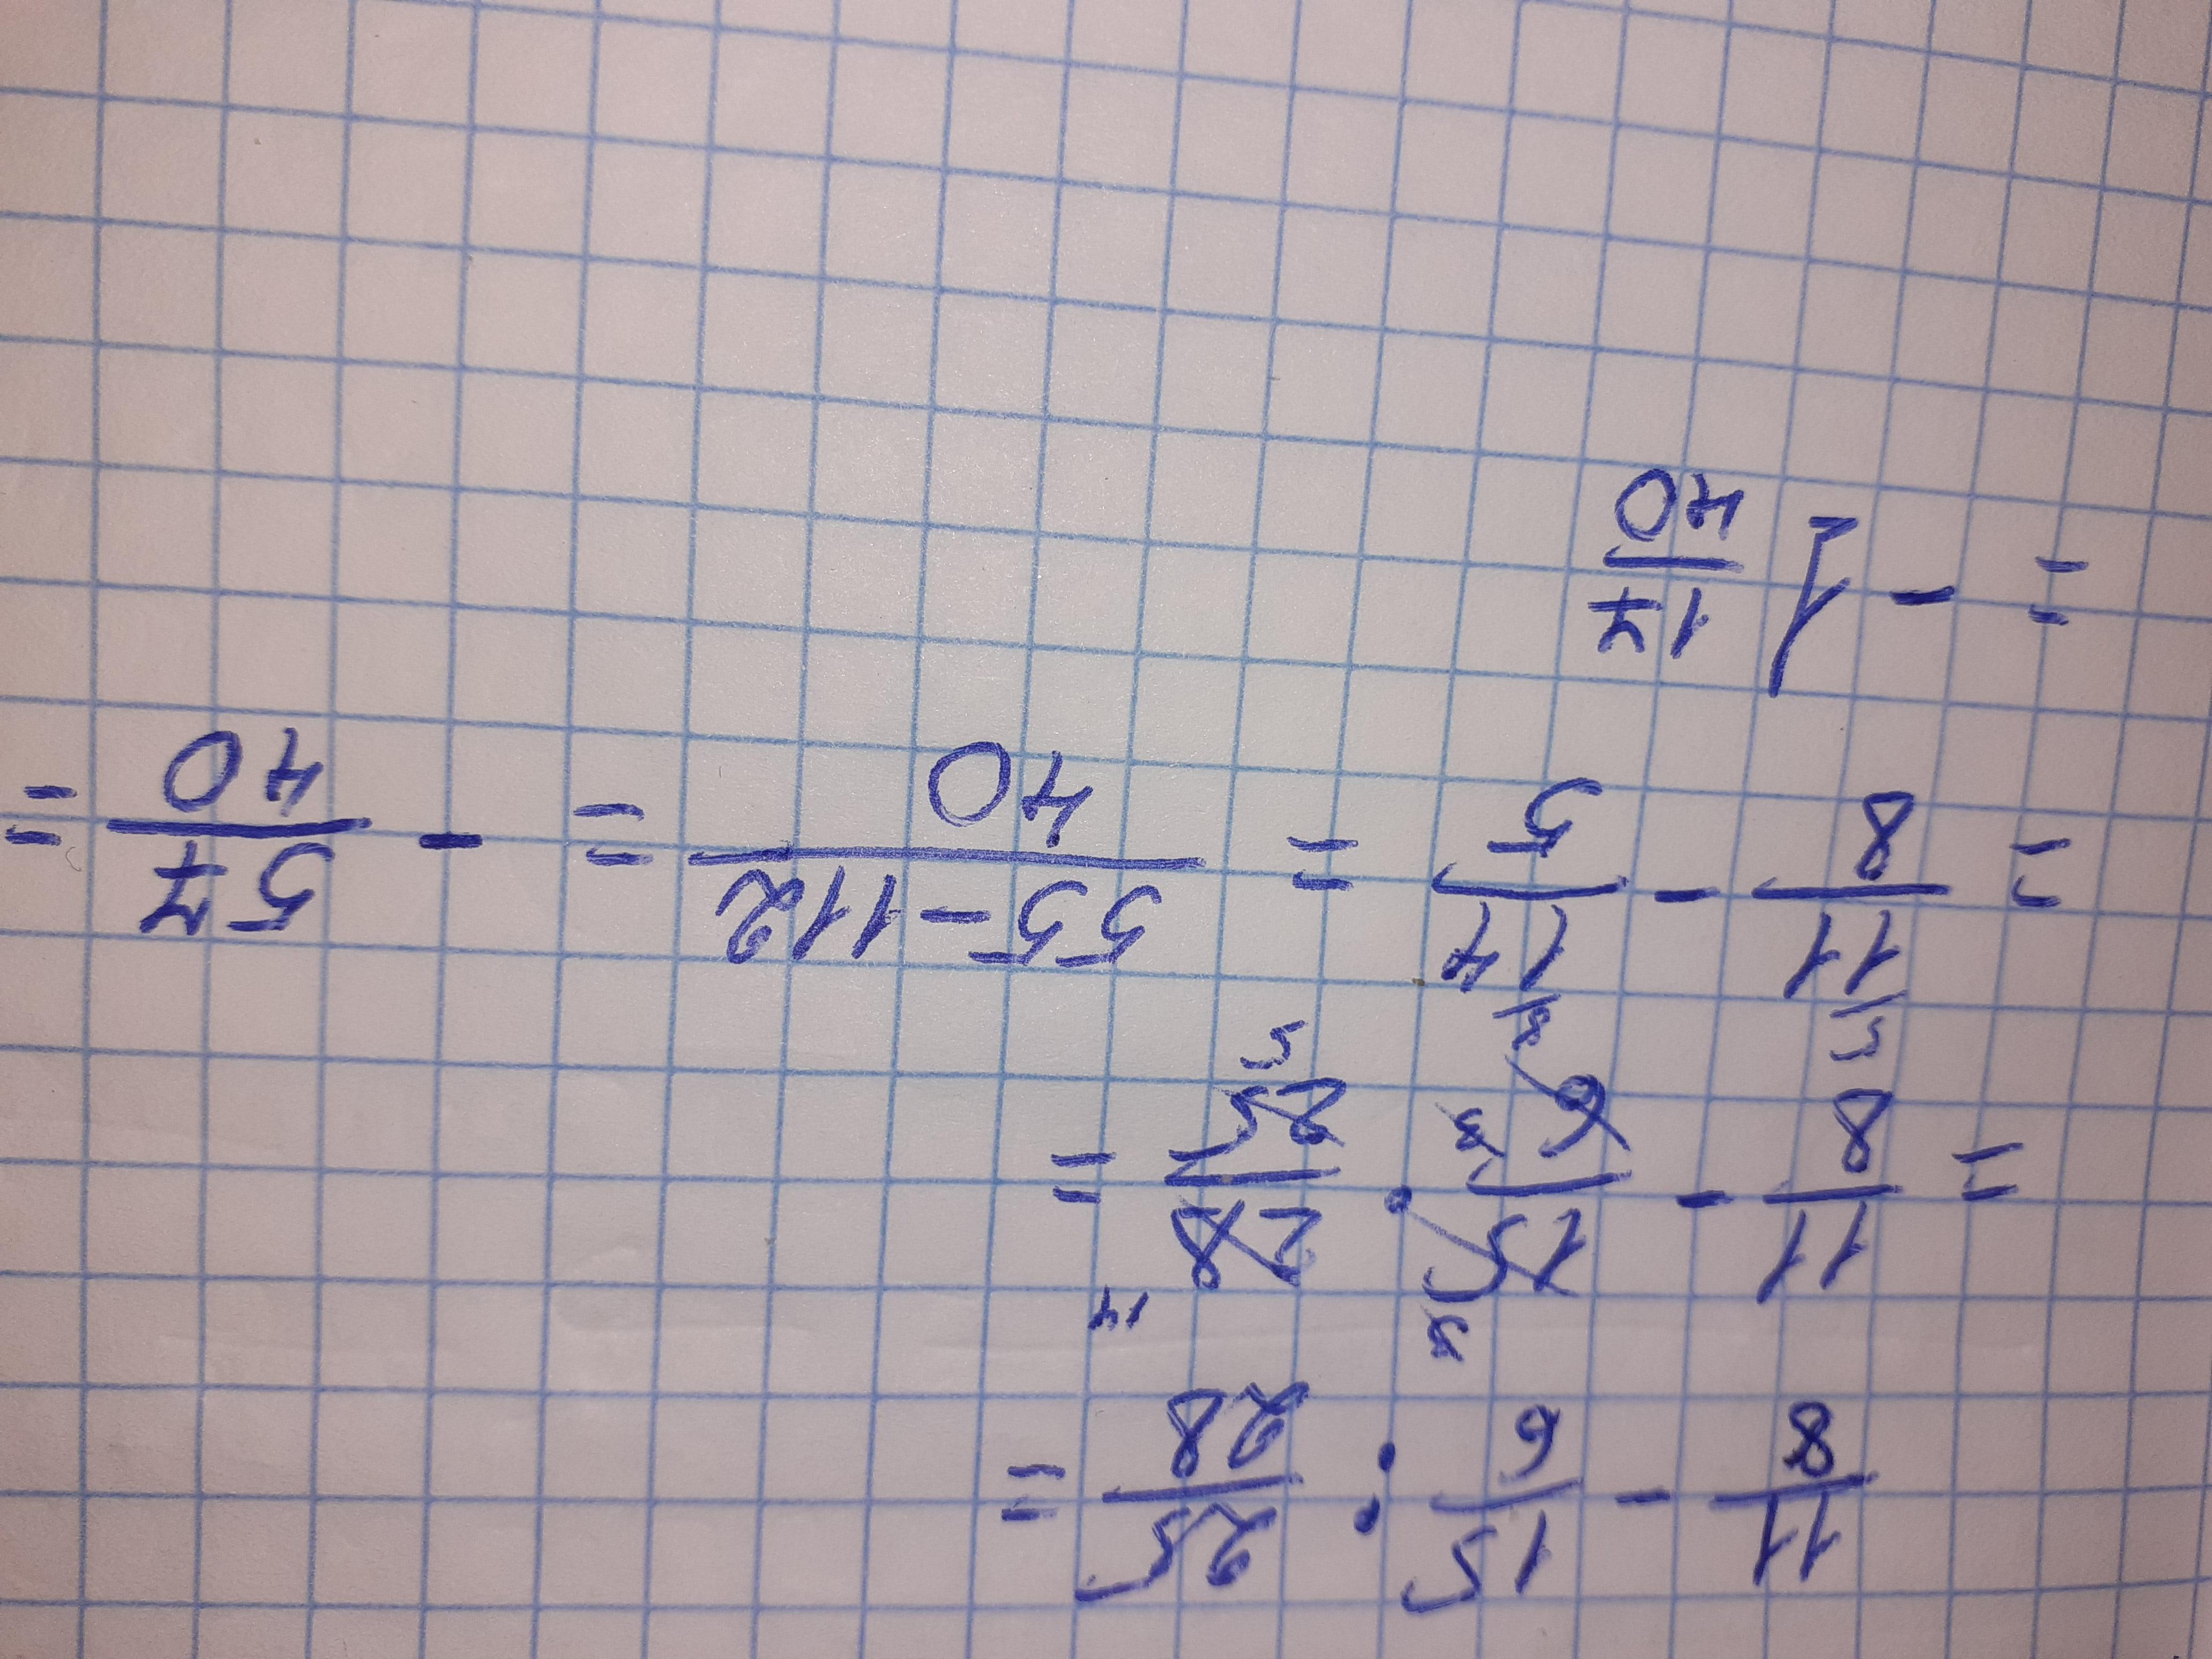 11/8 - 15/6 : 25/28 =
= 11/8 - 15/6 · 28/25 =
= 11/8 - 14/5 = 55-112/40 = - 57/40 =
= - 1 17/40